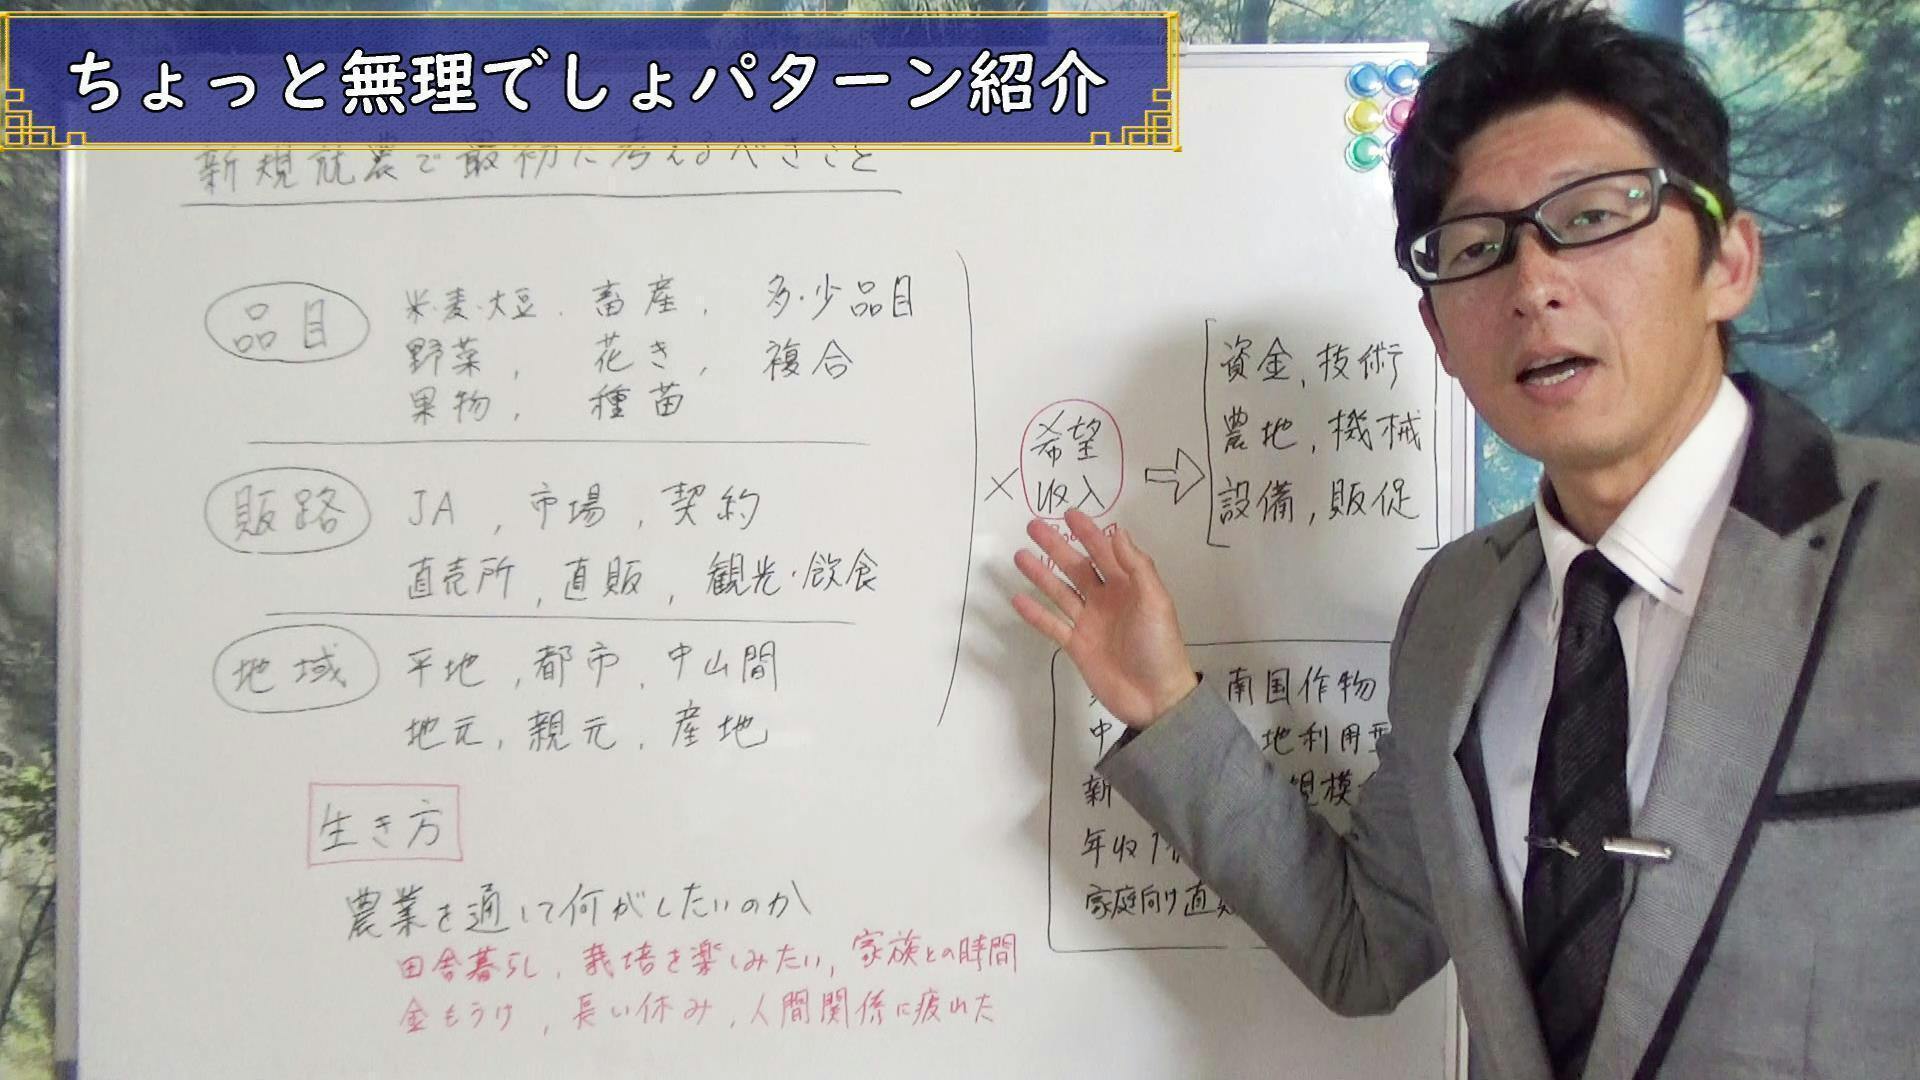 ちょっと無理でしょパターン紹介
新規就農で最初に考えるべきこと
品目
米・麦・大豆、畜産、多・少品目
野菜、花き、複合
果物、種苗
販路
JA、市場、契約
直売所、直販、観光・飲食
地域
平地、都市、中山間
地元、親元、産地
×
希望
収入
資金、技術
農地、機械
設備、販促
生き方
農業を通して何がしたいのか
田舎暮らし、栽培を楽しみたい、家族との時間
金もうけ、長い休み、人間関係に疲れた
南国作物
中 地利用
新 規模
年収1
家庭向け直